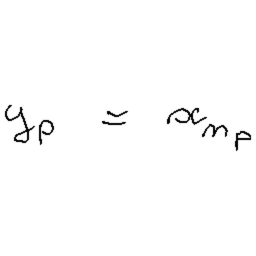 $y_p = x_{n_p}$